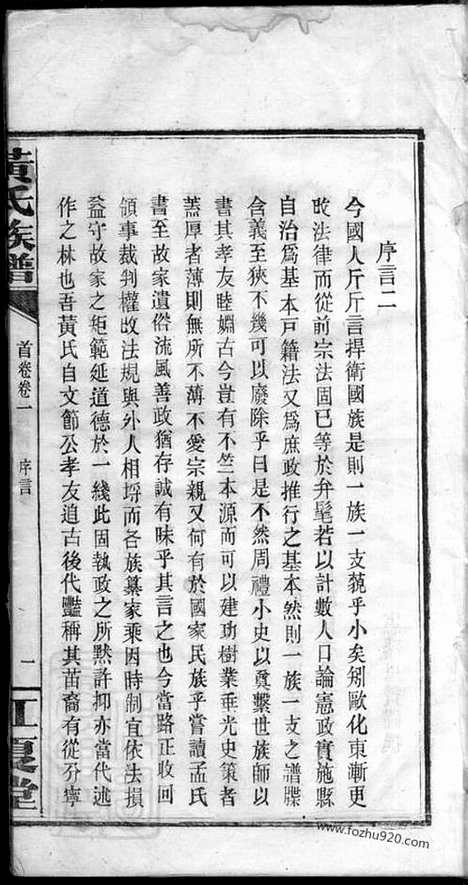 序言二
今國人斤斤言捍衛國族是則一族一支藐乎小矣矧歐化東漸更
改法律而從前宗法固已等於弁髦若以計數人口論憲政實施縣
自治爲基本戸籍法又爲庶政推行之基本然則一族一支之譜牒
含義至狹不幾可以廢除乎曰是不然周禮小史以奠繫世族師以
書其孝友睦婣古今豈有不竺本源而可以建功樹業垂光史策者
蓋厚者薄則無所不薄不愛宗親又何有於國家民族乎嘗讀孟氏
書至故家遺俗流風善政猶存誠有味乎其言之也今當路正收回
領事裁判權改法規與外人相埒而各族纂家乘因時制宜依法損
益守故家之矩範延道德於一綫此固執政之所默許抑亦當代述
作之林也吾黃氏自文節公孝友追古後代豔稱其苗裔有從分寧
黃氏族譜
首卷卷一
序言
一
江夏堂
www.fozhu920.com